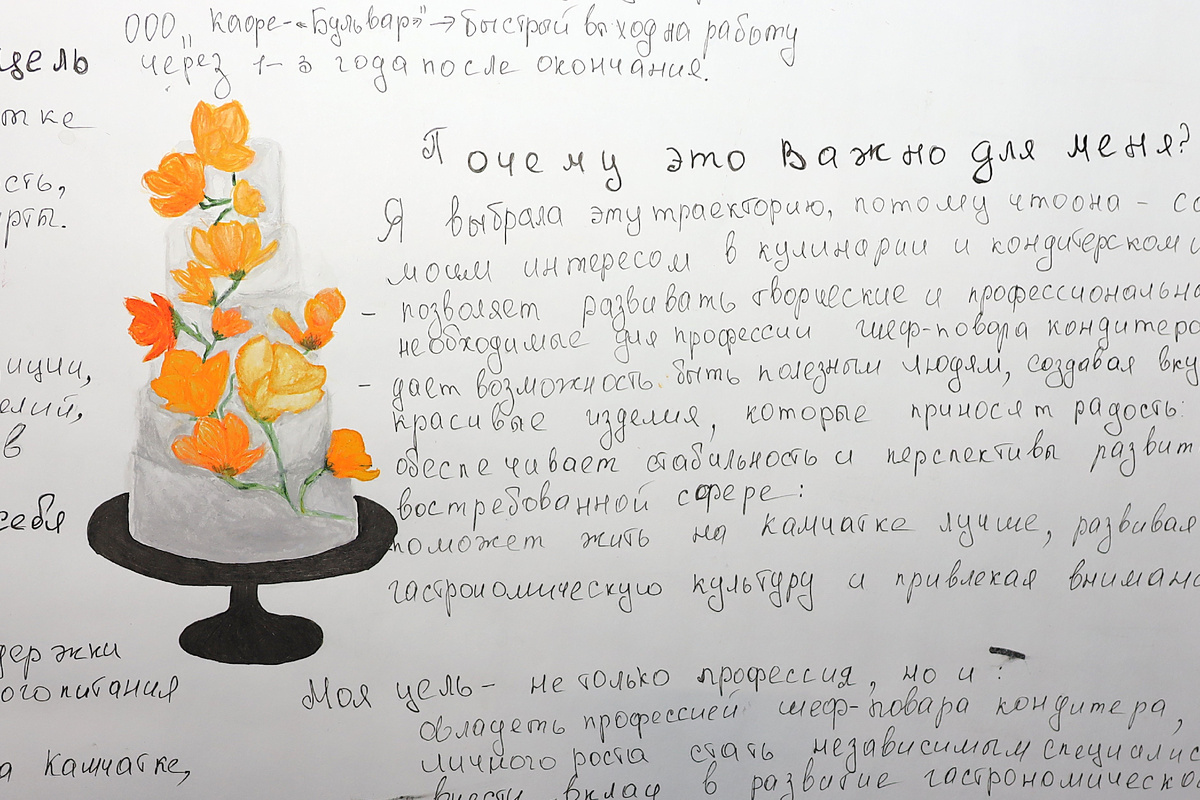 ООО „Кафе-«Бульвар»" → быстрый выход на работу
через 1-3 года после окончания.
цель
тке
сть,
рты.
иции,
елий,
в
себя
держки
ого питания
а Камчатке,
Почему это важно для меня?
Я выбрала эту траекторию, потому что она - со
моим интересом в кулинарии и кондитерском и
- позволяет развивать творческие и профессионально
необходимые для профессии шеф-повара кондитера
- дает возможность быть полезным людям, создавая вку
красивые изделия, которые приносят радость:
обеспечивает стабильность и перспективы развит
востребованной сфере:
поможет жить на камчатке лучше, развивая
гастрономическую культуру и привлекая внимани
Моя цель - не только профессия, но и:
овладеть профессией шеф-повара кондитера,
личного роста стать независимым специалис
внести вклад в развитие гастрономическо